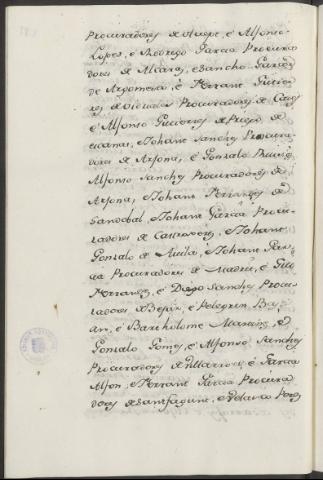 Procuradores de Huepte, é Alfonso
Lopes, é Rodrigo Garcia Procura
dores de Alcaraz, é Sancho Garcia
de Argomeda, é Ferrant Gutier
res de Procuradores de
é Alfonso Gutierres de
é Johant Sanchez Procura
dores de Arjona, é Gonzalo
Alfonso Sanchez Procuradores de
Arjona, é Johant Ferrandez de
Sandobal, é Johant Garcia Procu
radores de Castroxeriz, é Johant
Gonzalo de Avila, é Johant Gar
cia Procuradores de Madrit, é
Ferrandez, é Diego Sanchez Procu
radores de Bejar, é Pelegrin
é Bartholome Martinez, é
Gonzalo Gomez, é Alfonso Sanchez
Procuradores de Villarreal, é Garcia
Alfon, é Ferrant Garcia Procura
dores de Santfagunt, é Velasco Perez